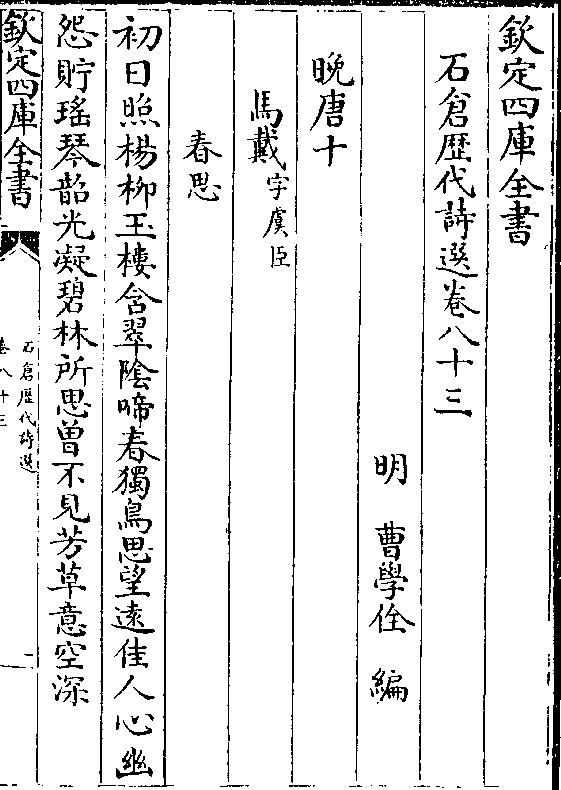 欽定四庫全書
石倉歴代詩選卷八十三
明　曹學佺　編
晚唐十
馬戴字虞臣
春思
初日照楊柳玉樓含翠陰啼春獨鳥思望遠佳人心幽
怨貯瑤琴韶光凝碧林所思曽不見芳草意空深
欽定四庫全書
石倉歴代詩選
卷八十三
一